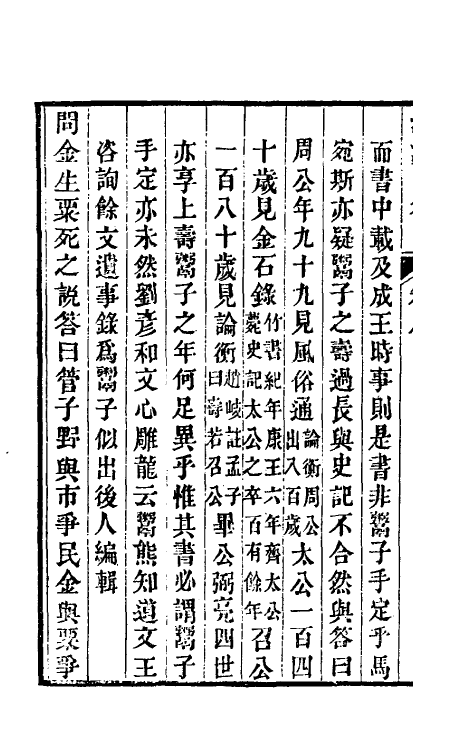 而書中載及成王時事則是書非鬻子手定乎馬
宛斯亦疑鬻子之壽過長與史記不合然與答曰
周公年九十九見風俗通論衡周公出入百歲太公一百四
十歲見金石錄竹書紀年康王六年齊太公薨史記太公之卒百有餘年召公
一百八十歲見論衡趙岐註孟子曰壽若召公畢公弼亮四世
亦享上壽鬻子之年何足異乎惟其書必謂鬻子
手定亦未然劉彥和文心雕龍云鬻熊知道文王
咨詢餘文遺事錄爲鬻子似出後人編輯
問金生粟死之說答曰管子野與市爭民金與粟爭